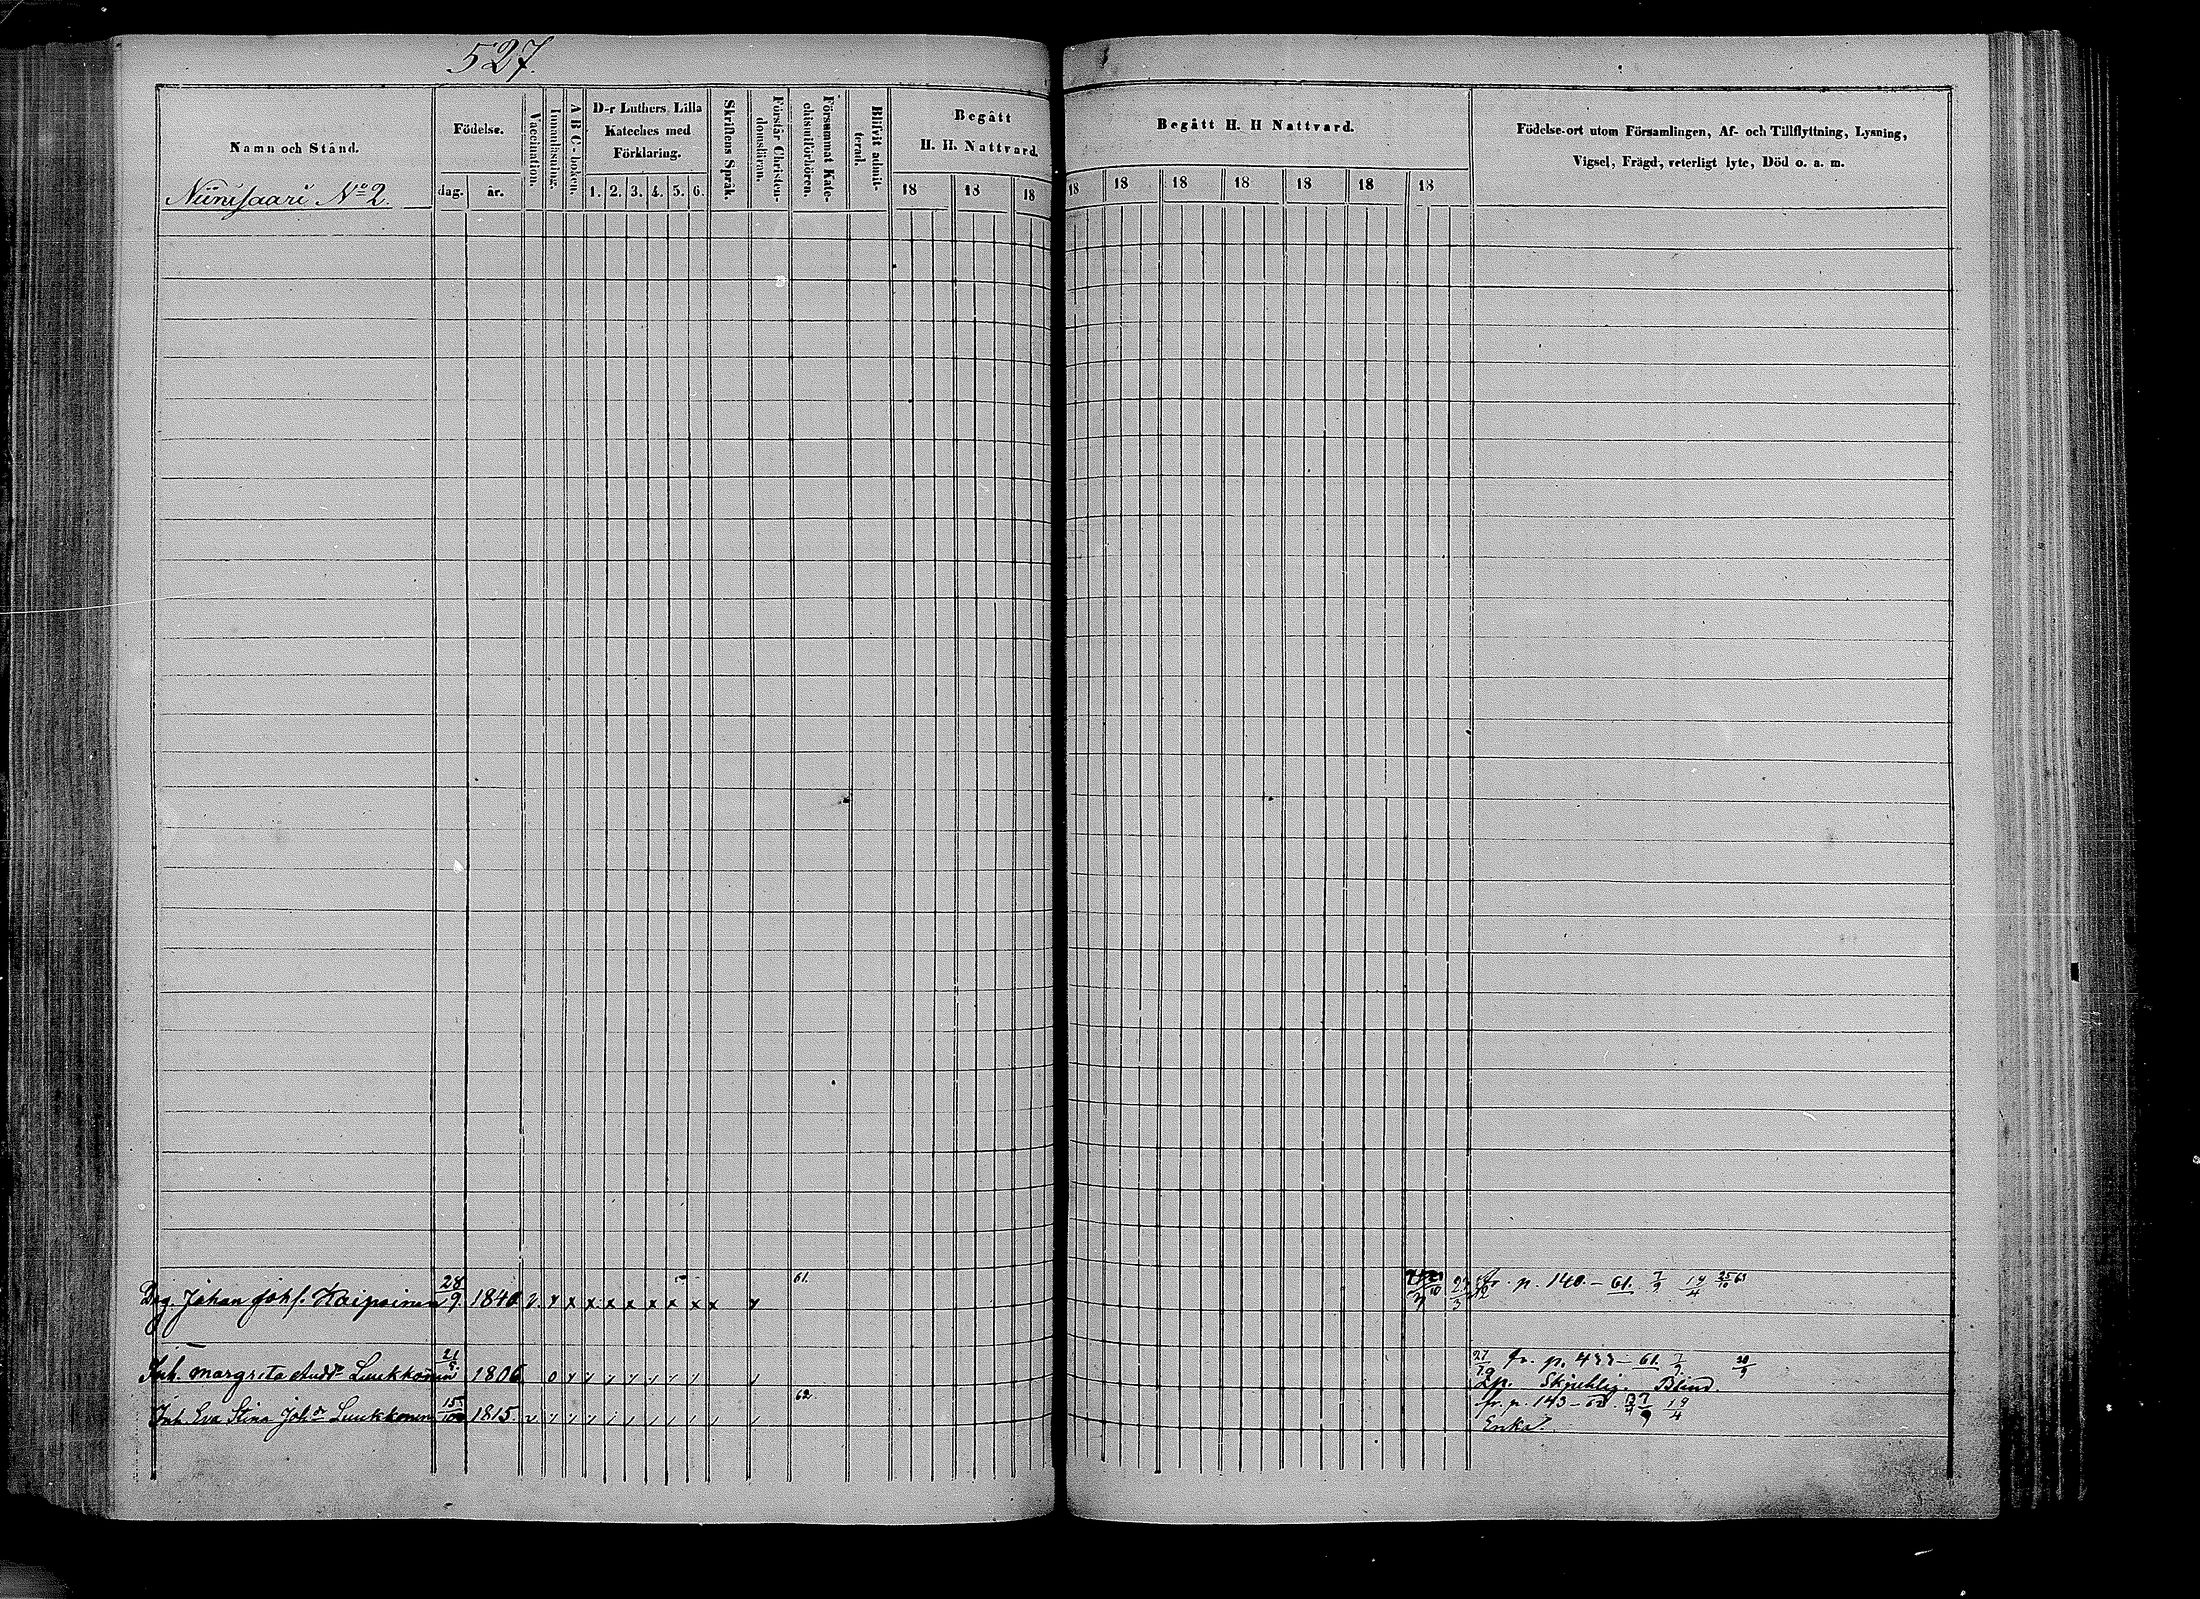 527.
Namn och Stånd.
Niinisaari No 2.
Födelse.
dag. år.
Vaccination.
Innanläsning.
A B C-boken.
D-r Luthers Lilla
Kateches med
Förklaring.
1. 2. 3. 4. 5. 6.
Skriftens Språk.
Förstår Christen-
domsläran.
Försummat Kate-
chismiförhören.
Blifvit admit-
terad.
Begått
H. H. Nattvard.
18 18 18
Begått H. H Nattvard.
18 18 18 18 18 18 18
Födelse-ort utom Församlingen, Af- och Tillflyttning, Lysning,
Vigsel, Frägd, veterligt lyte, Död o. a. m.
Drg. Johan Johs. Kaipainen 28/9 1840 v. x x x x x x x x x x 61. fr. p. 140.-61. 7/9 19/4
Inh. Margreta Andsdr Luukkonen 21/5. 1806 0 fr. p. 433-61. 7/9
Skjuklig. Blind.
Inh. Eva Stina Johdr Luukkonen 15/10 1815. v 62. fr. p. 143-62. 7/9 19/4
Enka.